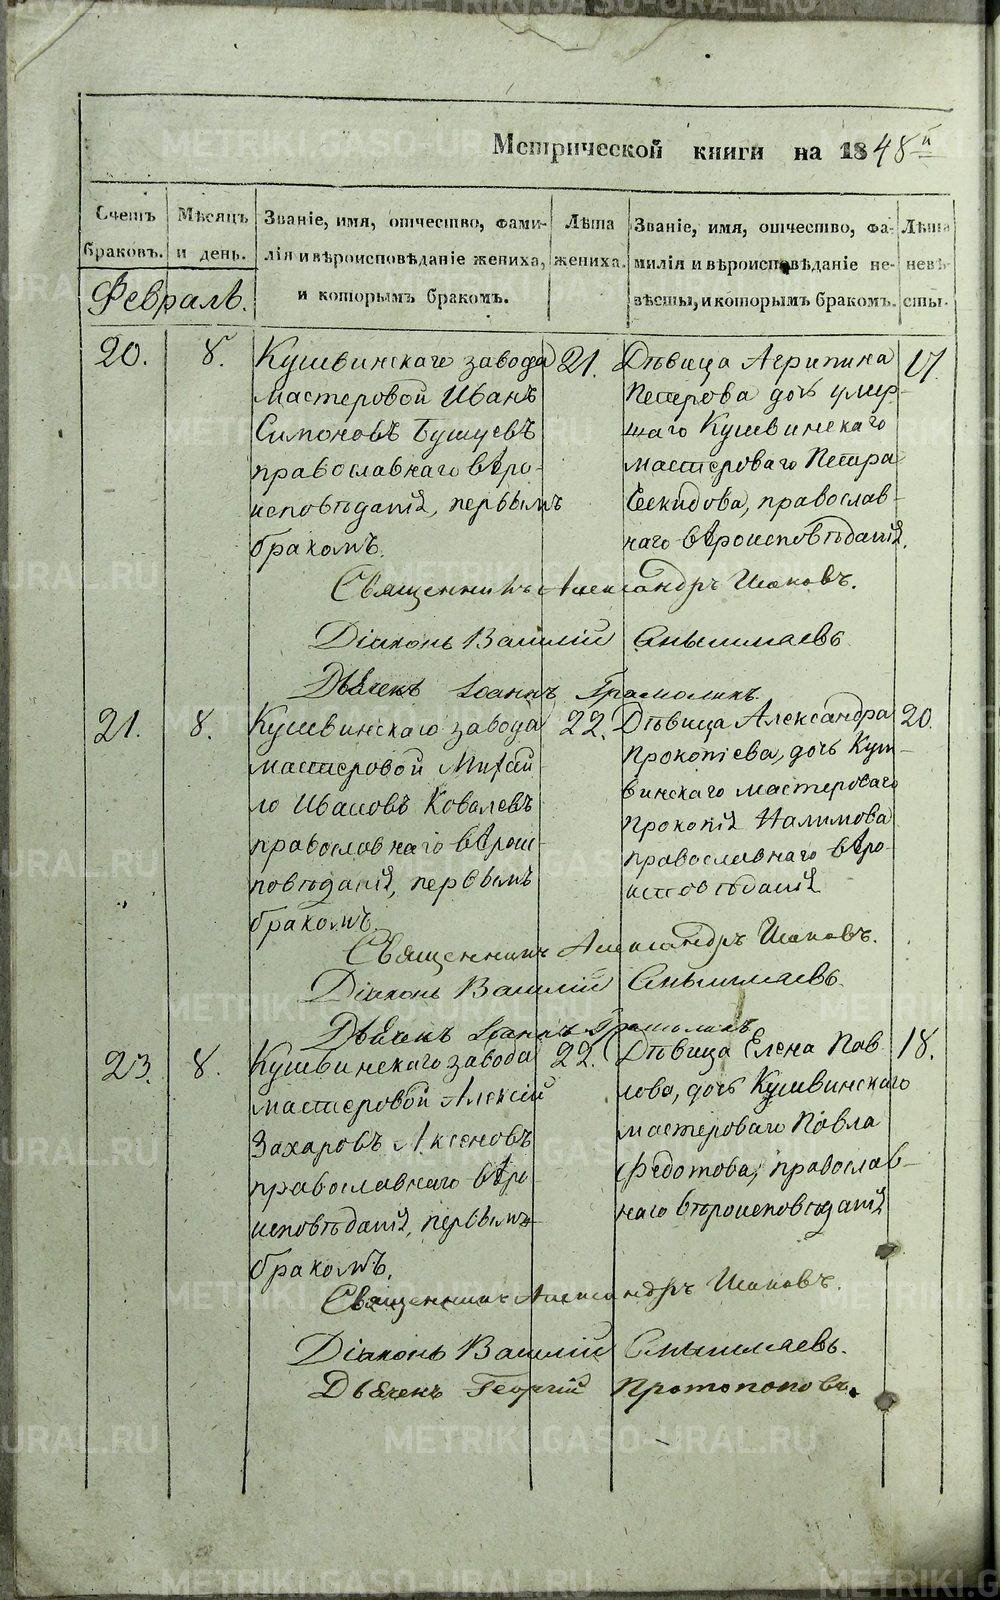 Метрической книги на 1848й
Счетъ браковъ.
Мѣсяцъ и день.
Званіе, имя, отчество, фами-
лія и вѣроисповѣданіе жениха,
и которымъ бракомъ.
Лѣта жениха.
Званіе, имя, отчество, фа-
милія и вѣроисповѣданіе не-
вѣсты, и которымъ бракомъ.
Лѣта невѣ-
сты.
Февраль.
20.
8.
Кушвинскаго завода
мастеровой Иванъ
Симоновъ Бушуевъ
православнаго вѣро-
исповѣданія, первымъ
бракомъ.
21.
Дѣвица Агрипина
Петрова дочь умер-
шаго Кушвинскаго
мастероваго Петра
православ-
наго вѣроисповѣданія.
17
Священникъ Александръ Ишаковъ.
Діаконъ Василій Смышляевъ
Дьячекъ Іоаннъ Грамолинъ.
21.
8.
Кушвинскаго завода
мастеровой Михаи-
ло Ивановъ Ковалевъ
православнаго вѣроис-
повѣданія, первымъ
бракомъ.
22.
Дѣвица Александра
Прокопіева, дочь Куш-
винскаго мастероваго
Прокопія Налимова
православнаго вѣро-
исповѣданія
20.
Священникъ Александръ Ишаковъ.
Діаконъ Василій Смышляевъ.
Дьячекъ Іоаннъ Грамолинъ
23.
8.
Кушвинскаго завода
мастеровой Алексій
Захаровъ Аксеновъ
православнаго вѣро-
исповѣданія, первымъ
бракомъ.
22.
Дѣвица Елена Пав
лова, дочь Кушвинскаго
мастероваго Павла
Федотова, православ-
наго вѣроисповѣданія
18.
Священникъ Александръ Ишаковъ.
Діаконъ Василій Смышляевъ.
Дьячекъ Георгій Протопоповъ.
METRIKI.GASO-URAL.RU